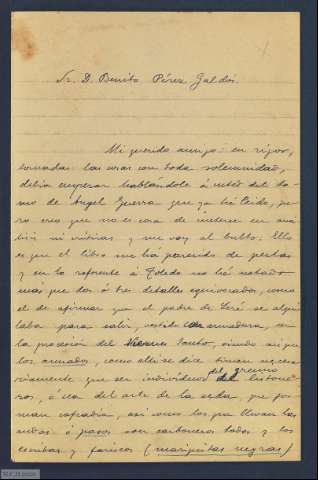 Sr. D. Benito Pérez Galdós.
Mi querido amigo: en rigor,
tomadas las cosas con toda solemnidad,
debia empezar hablándole á usted del to-
mo de Angel Guerra que ya hé leido, pe-
ro creo que no es cosa de meterse en aná-
lisis ni críticas y me voy al bulto. Ello
es que el libro me há parecido de perlas
y en lo referente á Toledo no hé notado
más que dos ó tres detalles equivocados, como
el de afirmar que el padre de Leré se alqui-
laba para salir, vestido con armadura, en
la procesión del Viernes Santo, siendo asi que
los armados, como allí se dice tienen necesa-
riamente que ser individuos del gremio
del listone-
ros, ó sea del arte de la seda, que for-
man cofradia, asi como los que llevan las
andas ó pasos son carboneros todos y los
escribas y fariseos (mariquitas negras)